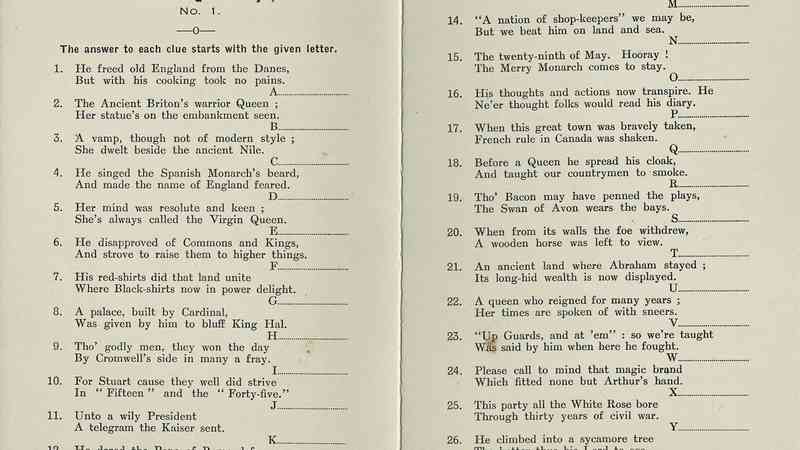 No. 1.
—o—
The answer to each clue starts with the given letter.
1. He freed old England from the Danes,
But with his cooking took no pains.
A
2. The Ancient Briton's warrior Queen ;
Her statue's on the embankment seen.
B
3. A vamp, though not of modern style ;
She dwelt beside the ancient Nile.
C
4. He singed the Spanish Monarch's beard,
And made the name of England feared.
D
5. Her mind was resolute and keen ;
She's always called the Virgin Queen.
E
6. He disapproved of Commons and Kings,
And strove to raise them to higher things.
F
7. His red-shirts did that land unite
Where Black-shirts now in power delight.
G
8. A palace, built by Cardinal,
Was given by him to bluff King Hal.
H
9. Tho' godly men, they won the day
By Cromwell's side in many a fray.
I
10. For Stuart cause they well did strive
In "Fifteen" and the "Forty-five."
J
11. Unto a wily President
A telegram the Kaiser sent.
K
M
14. "A nation of shop-keepers" we may be,
But we beat him on land and sea.
N
15. The twenty-ninth of May. Hooray !
The Merry Monarch comes to stay.
O
16. His thoughts and actions now transpire. He
Ne'er thought folks would read his diary.
P
17. When this great town was bravely taken,
French rule in Canada was shaken.
Q
18. Before a Queen he spread his cloak,
And taught our countrymen to smoke.
R
19. Tho' Bacon may have penned the plays,
The Swan of Avon wears the bays.
S
20. When from its walls the foe withdrew,
A wooden horse was left to view.
T
21. An ancient land where Abraham stayed ;
Its long-hid wealth is now displayed.
U
22. A queen who reigned for many years ;
Her times are spoken of with sneers.
V
23. "Up Guards, and at 'em" : so we're taught
Was said by him when here he fought.
W
24. Please call to mind that magic brand
Which fitted none but Arthur's hand.
X
25. This party all the White Rose bore
Through thirty years of civil war.
Y
26. He climbed into a sycamore tree